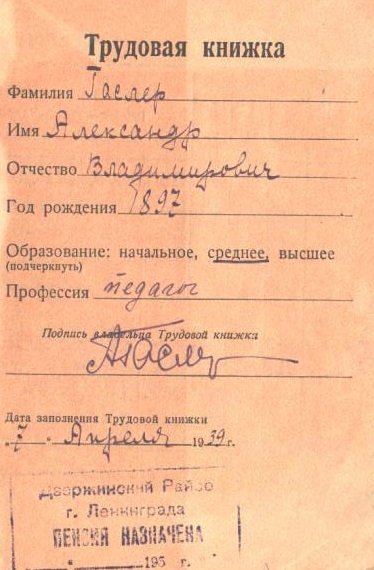 Трудовая книжка
Фамилия Гаслер
Имя Александр
Отчество Владимирович
Год рождения 1897
Образование: начальное, среднее, высшее
(подчеркнуть)
Профессия педагог
Подпись владельца Трудовой книжки
АГасле
Дата заполнения Трудовой книжки
„7“ Апреля 1939 г.
Дзержинский Райсо
г. Ленинграда
ПЕНСИЯ НАЗНАЧЕНА
195 г.